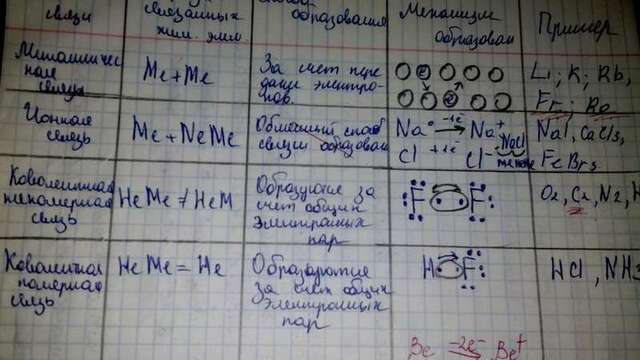 связи
связанных
хим. элем.
образования
Механизм
образован
Пример
Металличес
кая
связь
Me+Me
За счет пере
дачи электро-
нов.
Li; K; Rb,
Fr;
Ионная
связь
Me+NeMe
способ
связи образован
Na° -1ē→ Na⁺
NaCl
Cl +1ē Cl⁻
NaI, CaCl₃,
FeBr₃
Ковалентная
неполярная
связь
НеМе ≠ НеМ
Образуется за
счет общих
электронных
пар
F F
O₂, Cr, N₂, H
Ковалентная
полярная
связь
НеМе = Не
за счет общих
электронных
пар
H F
HCl, NH₃
Be -2ē→ Be⁺